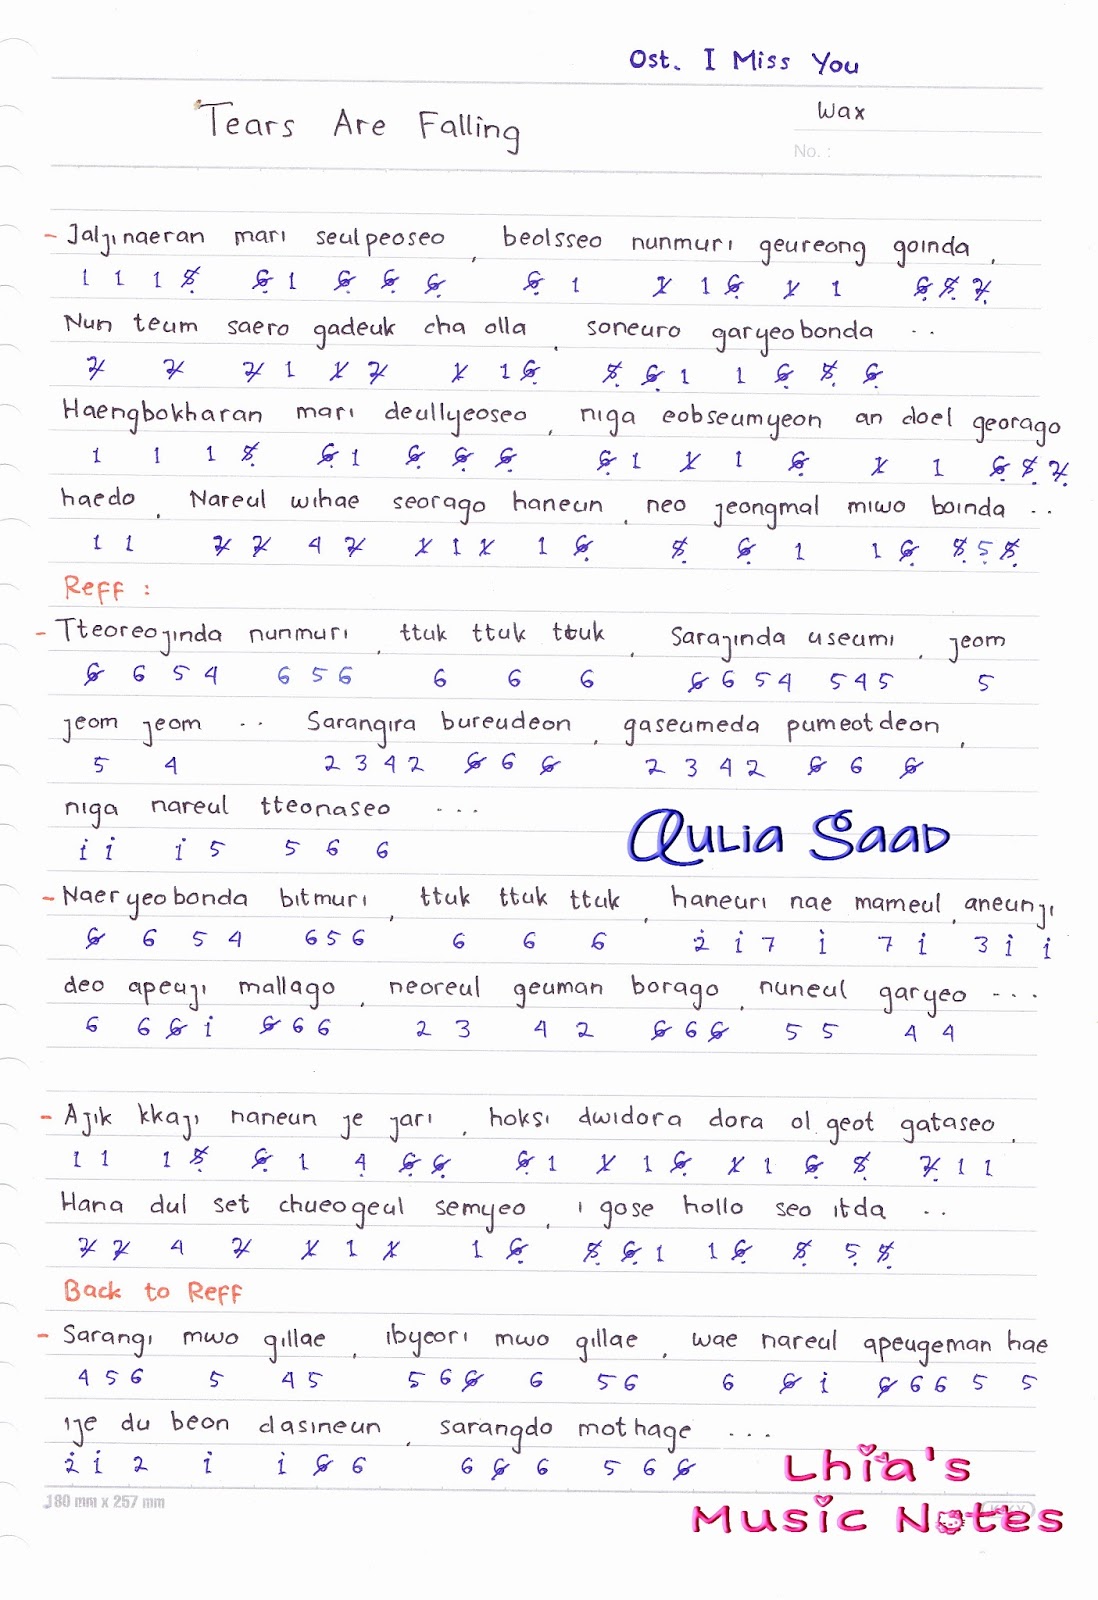 Ost. I Miss You
Tears Are Falling
Wax
No. :
- Jaljinaeran mari seulpeoseo, beolsseo nunmuri geureong goinda,
1 1 1 5̸ 6̸ 1 6̸ 6̸ 6̸ 6̸ 1 1̸ 1 6̸ 1̸ 1 6̸ 5̸ 2̸
Nun teum saero gadeuk cha olla, soneuro garyeobonda ..
2̸ 2̸ 2̸ 1 1̸ 2̸ 1̸ 1 6̸ 5̸ 6̸ 1 1 6̸ 5̸ 6̸
Haengbokharan mari deullyeoseo, niga eobseumyeon an doel georago
1 1 1 5̸ 6̸ 1 6̸ 6̸ 6̸ 6̸ 1 1̸ 1 6̸ 1̸ 1 6̸ 5̸ 2̸
haedo, Nareul wihae seorago haneun, neo jeongmal miwo boinda ..
1 1 2̸ 2̸ 4 2̸ 1̸ 1 1̸ 1 6̸ 5̸ 6̸ 1 1 6̸ 5̸ 5 5̸
Reff :
- Tteoreojinda nunmuri, ttuk ttuk ttuk, Sarajinda useumi, jeom
6̸ 6 5 4 6 5 6 6 6 6 6̸ 6 5 4 5 4 5 5
jeom jeom .. Sarangira bureudeon, gaseumeda pumeotdeon,
5 4 2 3 4 2 6̸ 6 6̸ 2 3 4 2 6̸ 6 6̸
niga nareul tteonaseo ...
i i i 5 5 6 6
Qulia Saad
- Naeryeobonda bitmuri, ttuk ttuk ttuk, haneuri nae mameul, aneunji
6̸ 6 5 4 6 5 6 6 6 6 2̇ i 7 i 7 i 3 i i
deo apeuji mallago, neoreul geuman borago, nuneul garyeo ...
6 6 6̸ i 6̸ 6 6 2 3 4 2 6̸ 6 6̸ 5 5 4 4
- Ajik kkaji naneun je jari, hoksi dwidora dora ol geot gataseo,
1 1 1 5̸ 6̸ 1 4 6̸ 6̸ 6̸ 1 1̸ 1 6̸ 1̸ 1 6̸ 5̸ 2̸ 1 1
Hana dul set chueogeul semyeo, i gose hollo seo itda ..
2̸ 2̸ 4 2̸ 1̸ 1 1̸ 1 6̸ 5̸ 6̸ 1 1 6̸ 5̸ 5 5̸
Back to Reff
- Sarangi mwo gillae, ibyeori mwo gillae, wae nareul apeugeman hae
4 5 6 5 4 5 5 6 6̸ 6 5 6 6 6̸ i 6̸ 6 6 5 5
ije du beon dasineun, sarangdo mothage ...
2̇ i 2 i i 6̸ 6 6 6̸ 6 5 6 6̸
180 mm x 257 mm
Lhia's
Music Notes